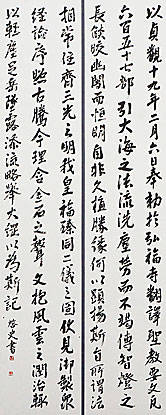 以貞觀十九年二月六日奉勅於弘福寺翻譯聖教要文凡
六百五十七部引大海之法流洗塵勞而不竭傳智燈之
長焰皎幽闇而恒明自非久植勝緣何以顯揚斯旨所謂法
相常住齊三光之明我皇福臻同二儀之固伏見御製眾
經論序照古騰今理含金石之聲文抱風雲之潤治輒
以輕塵足岳墜露添流略舉大綱以為斯記